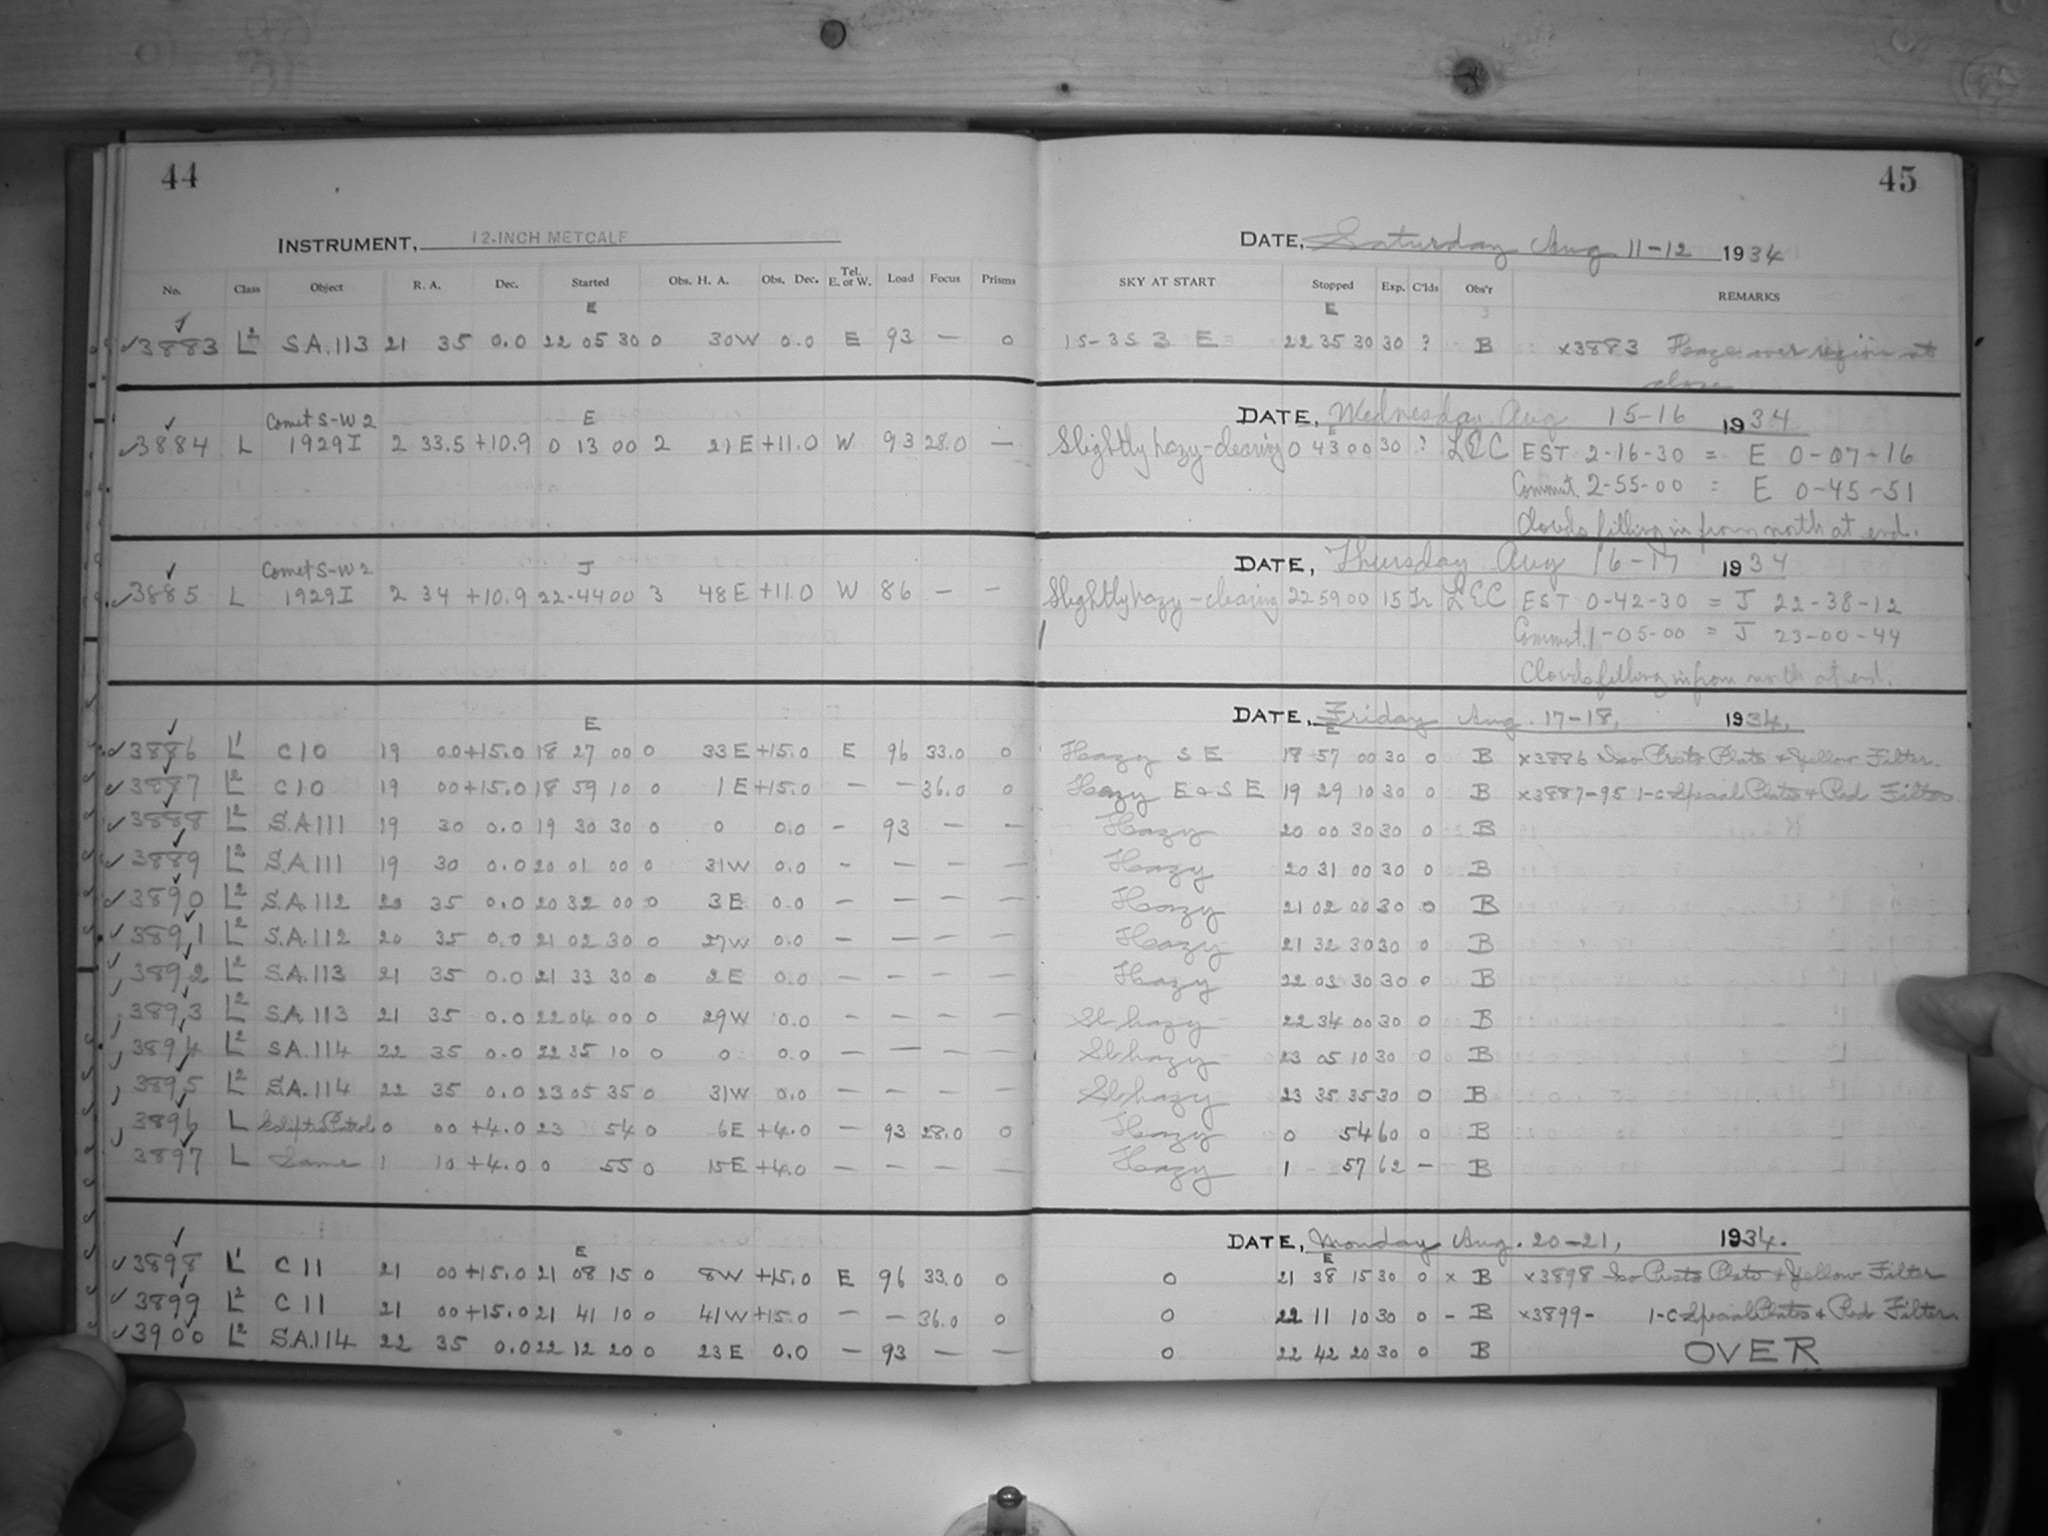 44
45
INSTRUMENT, 12-INCH METCALF
DATE, Saturday Aug 11-12 1934
No. Class Object R. A. Dec. Started Obs. H. A. Obs. Dec. Tel. E. or W. Load Focus Prisms SKY AT START Stopped Exp. C'lds Obs'r REMARKS
E E
3883 L2 S.A. 113 21 35 0.0 22 05 30 0 30W 0.0 E 93 — 0 15-35 3 E 22 35 30 30 ? B x3883 Haze over region at
close
DATE, Wednesday Aug 15-16 1934
Comet S-W 2 E E
3884 L 1929 I 2 33.5 +10.9 0 13 00 2 21 E +11.0 W 93 28.0 — Slightly hazy-clearing 0 43 00 30 ? LEC EST 2-16-30 = E 0-07-16
Commut. 2-55-00 = E 0-45-51
Clouds filling in from north at end.
DATE, Thursday Aug 16-17 1934
Comet S-W 2 J
3885 L 1929 I 2 34 +10.9 22-44 00 3 48 E +11.0 W 86 — — Slightly hazy-clearing 22 59 00 15 Tr LEC EST 0-42-30 = J 22-38-12
Commut. 1-05-00 = J 23-00-44
Clouds filling in from north at end.
DATE, Friday Aug. 17-18, 1934.
E E
3886 L1 C 10 19 00 +15.0 18 27 00 0 33 E +15.0 E 96 33.0 0 Hazy S E 18 57 00 30 0 B x3886 Iso Presto Plate & Yellow Filter.
3887 L2 C 10 19 00 +15.0 18 59 10 0 1 E +15.0 — — 36.0 0 Hazy E & S E 19 29 10 30 0 B x3887-95 1-C Special Plates & Red Filter
3888 L2 S.A 111 19 30 0.0 19 30 30 0 0 0.0 - 93 — — Hazy 20 00 30 30 0 B
3889 L2 S.A 111 19 30 0.0 20 01 00 0 31W 0.0 - — — — Hazy 20 31 00 30 0 B
3890 L2 S.A. 112 20 35 0.0 20 32 00 0 3 E 0.0 — — — — Hazy 21 02 00 30 0 B
3891 L2 S.A. 112 20 35 0.0 21 02 30 0 27W 0.0 — — — — Hazy 21 32 30 30 0 B
3892 L2 S.A. 113 21 35 0.0 21 33 30 0 2 E 0.0 — — — — Hazy 22 03 30 30 0 B
3893 L2 S.A. 113 21 35 0.0 22 04 00 0 29W 0.0 — — — — Sl hazy 22 34 00 30 0 B
3894 L2 S.A. 114 22 35 0.0 22 35 10 0 0 0.0 — — — — Sl hazy 23 05 10 30 0 B
3895 L2 S.A. 114 22 35 0.0 23 05 35 0 31W 0.0 — — — — Sl hazy 23 35 35 30 0 B
3896 L Ecliptic Patrol 0 00 +4.0 23 54 0 6E +4.0 — 93 28.0 0 Hazy 0 54 60 0 B
3897 L Same 1 10 +4.0 0 55 0 15 E +4.0 — — — — Hazy 1 57 62 — B
DATE, Monday Aug. 20-21, 1934.
E E
3898 L1 C 11 21 00 +15.0 21 08 15 0 8W +15.0 E 96 33.0 0 0 21 38 15 30 0 x B x3898 Iso Presto Plate & Yellow Filter
3899 L2 C 11 21 00 +15.0 21 41 10 0 41W +15.0 — — 36.0 0 0 22 11 10 30 0 - B x3899- 1-C Special Plates & Red Filter.
3900 L2 S.A. 114 22 35 0.0 22 12 20 0 23 E 0.0 — 93 — — 0 22 42 20 30 0 B OVER